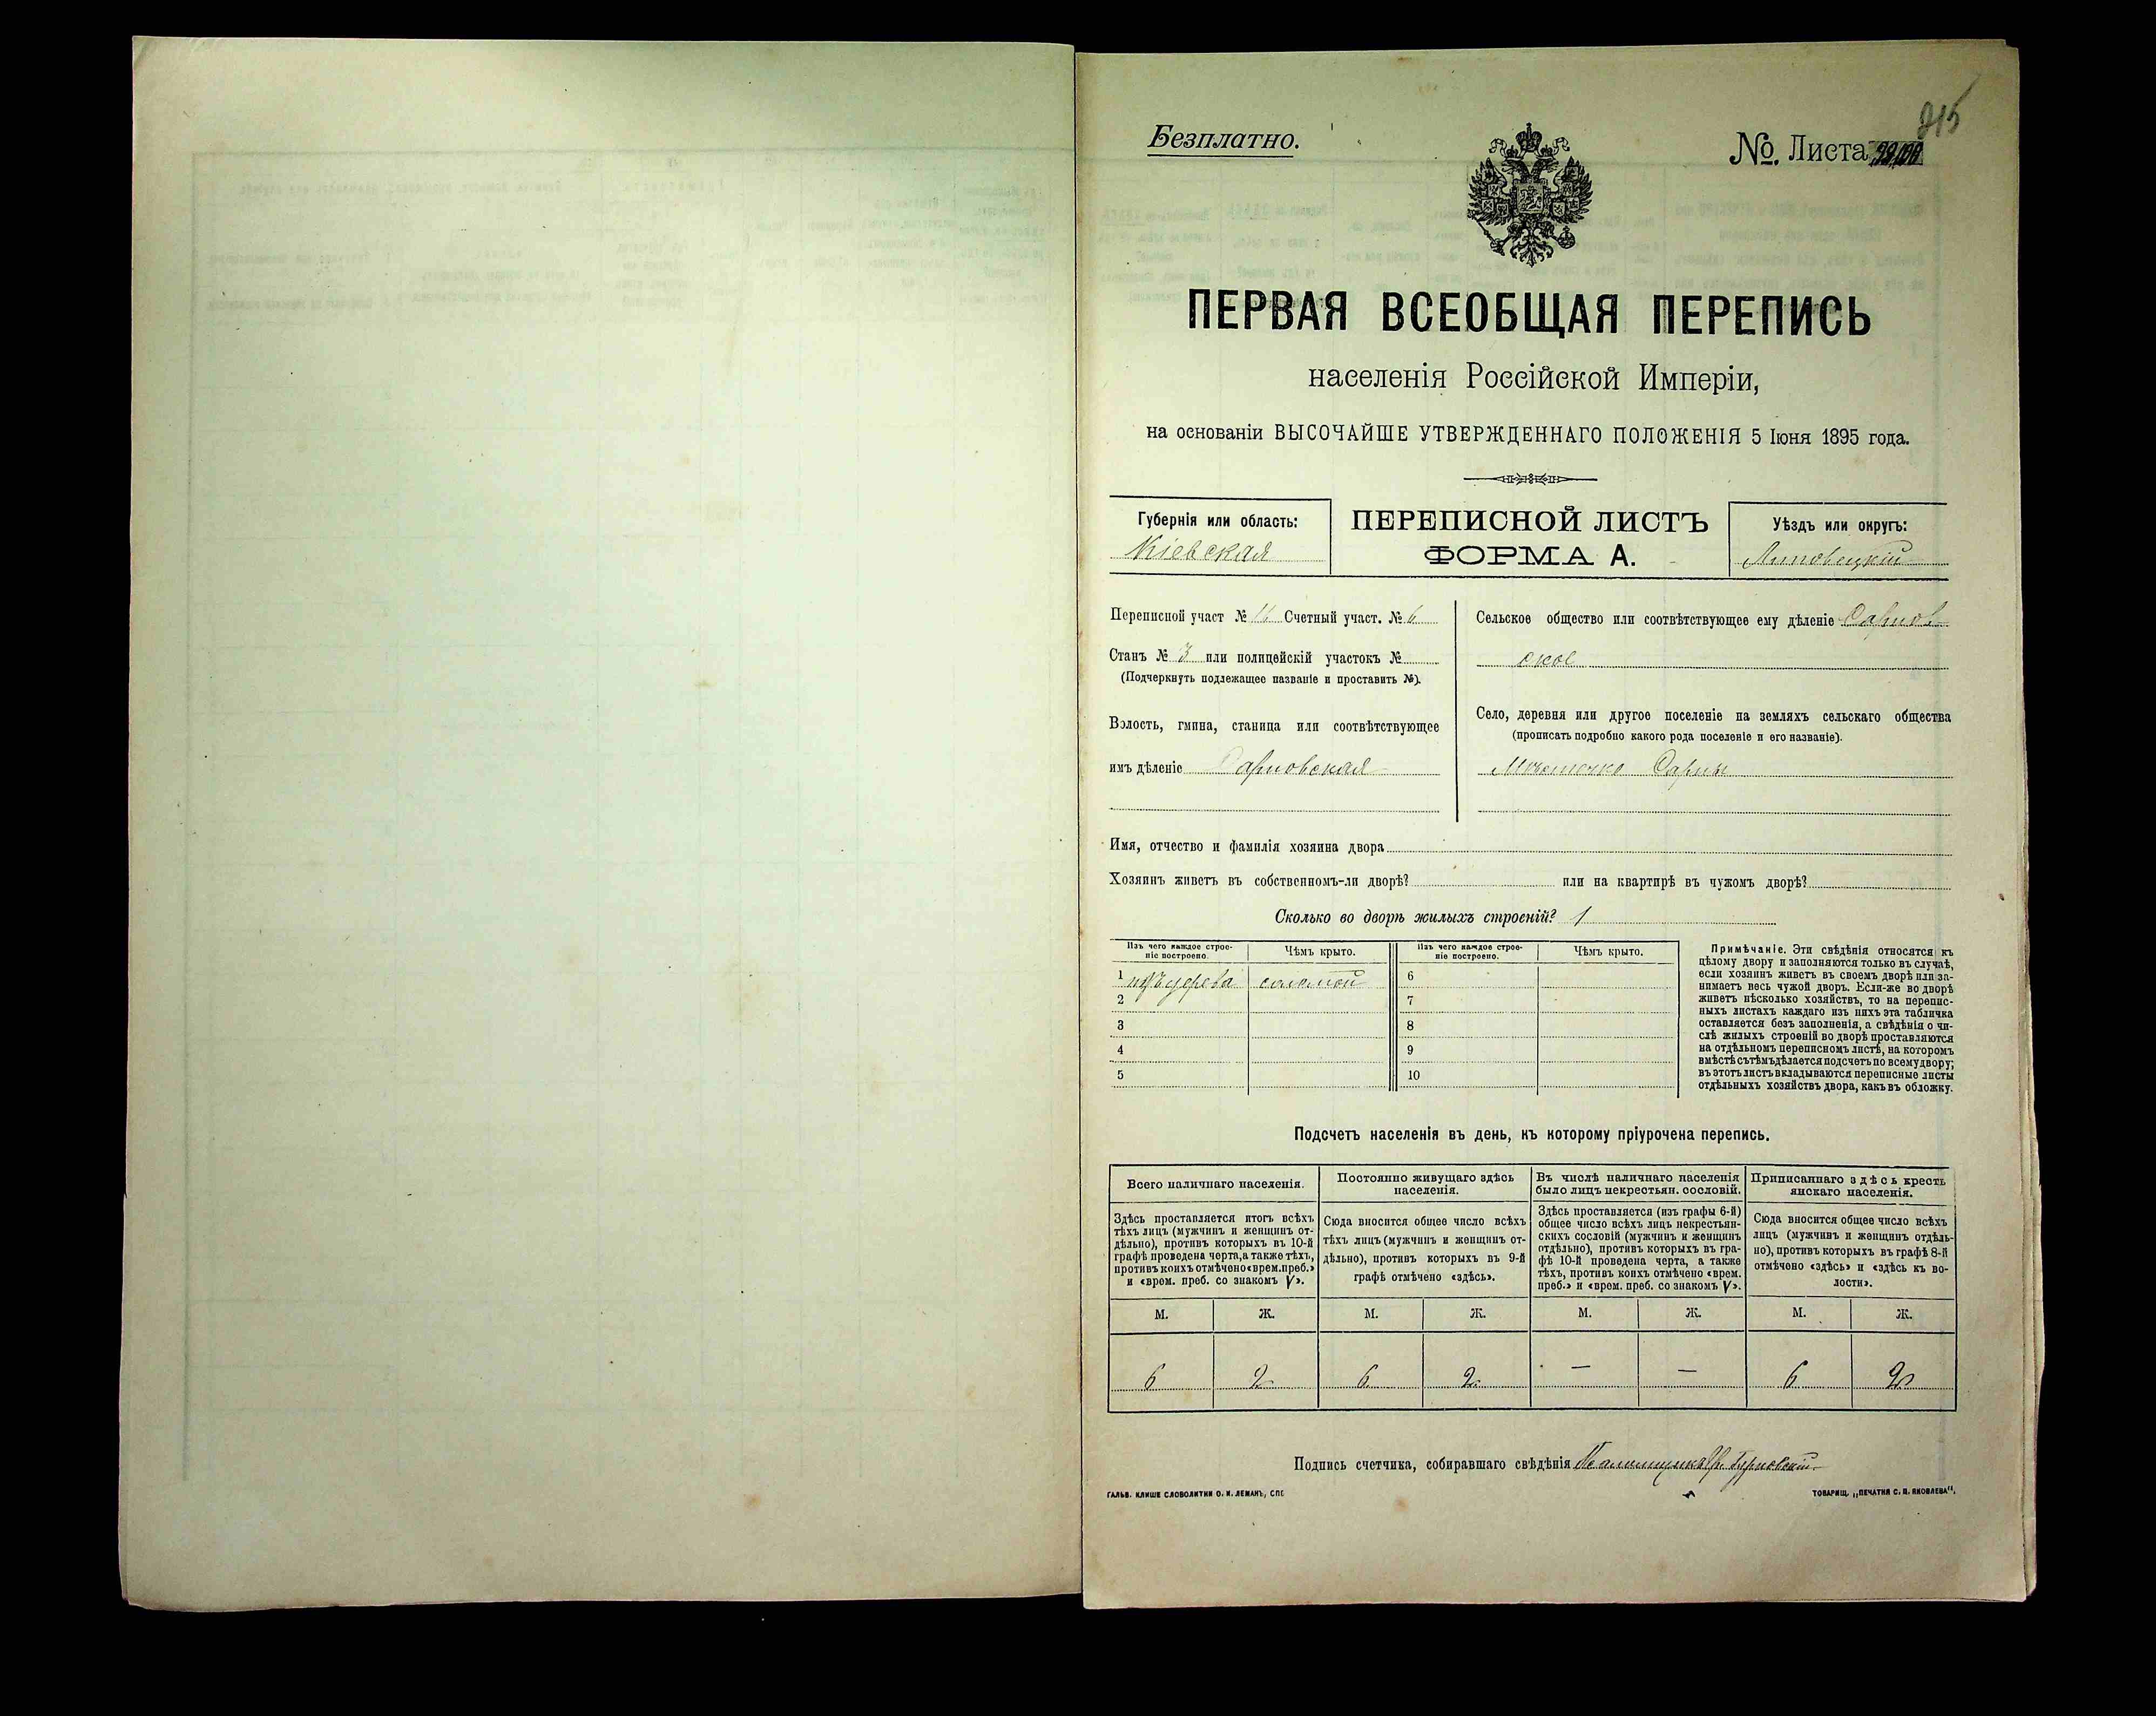 215
Безплатно.
№. Листа
ПЕРВАЯ ВСЕОБЩАЯ ПЕРЕПИСЬ
населенія Россійской Имперіи,
на основаніи ВЫСОЧАЙШЕ УТВЕРЖДЕННАГО ПОЛОЖЕНІЯ 5 Іюня 1895 года.
Губернія или область:
Кіевская
ПЕРЕПИСНОЙ ЛИСТЪ
ФОРМА А.
Уѣздъ или округъ:
Липовецкій
Переписной участ № 11 Счетный участ. № 6
Станъ № 3 или полицейскій участокъ №
(Подчеркнуть подлежащее названіе и проставить №).
Волость, гмина, станица или соотвѣтствующее
имъ дѣленіе Сарновская
Сельское общество или соотвѣтствующее ему дѣленіе Сарнов-
ское
Село, деревня или другое поселеніе на земляхъ сельскаго общества
(прописать подробно какого рода поселеніе и его названіе).
Мѣстечко Сарны
Имя, отчество и фамилія хозяина двора
Хозяинъ живетъ въ собственномъ-ли дворѣ? или на квартирѣ въ чужомъ дворѣ?
Сколько во дворѣ жилыхъ строеній? 1
Изъ чего каждое строе-
ніе построено.
Чѣмъ крыто.
Изъ чего каждое строе-
ніе построено.
Чѣмъ крыто.
1 изъ дерева соломой 6
2 7
3 8
4 9
5 10
Примѣчаніе. Эти свѣдѣнія относятся къ
цѣлому двору и заполняются только въ случаѣ,
если хозяинъ живетъ въ своемъ дворѣ или за-
нимаетъ весь чужой дворъ. Если-же во дворѣ
живетъ нѣсколько хозяйствъ, то на перепис-
ныхъ листахъ каждаго изъ нихъ эта табличка
оставляется безъ заполненія, а свѣдѣнія о чи-
слѣ жилыхъ строеній во дворѣ проставляются
на отдѣльномъ переписномъ листѣ, на которомъ
вмѣстѣ съ тѣмъ дѣлается подсчетъ по всему двору;
въ этотъ листъ вкладываются переписные листы
отдѣльныхъ хозяйствъ двора, какъ въ обложку.
Подсчетъ населенія въ день, къ которому пріурочена перепись.
Всего наличнаго населенія.
Здѣсь проставляется итогъ всѣхъ
тѣхъ лицъ (мужчинъ и женщинъ от-
дѣльно), противъ которыхъ въ 10-й
графѣ проведена черта, а также тѣхъ,
противъ коихъ отмѣчено «врем. преб.»
и «врем. преб. со знакомъ V».
Постоянно живущаго здѣсь
населенія.
Сюда вносится общее число всѣхъ
тѣхъ лицъ (мужчинъ и женщинъ от-
дѣльно), противъ которыхъ въ 9-й
графѣ отмѣчено «здѣсь».
Въ числѣ наличнаго населенія
было лицъ некрестьян. сословій.
Здѣсь проставляется (изъ графы 6-й)
общее число всѣхъ лицъ некрестьян-
скихъ сословій (мужчинъ и женщинъ
отдѣльно), противъ которыхъ въ гра-
фѣ 10-й проведена черта, а также
тѣхъ, противъ коихъ отмѣчено «врем.
преб.» и «врем. преб. со знакомъ V».
Приписаннаго здѣсь кресть
янскаго населенія.
Сюда вносится общее число всѣхъ
лицъ (мужчинъ и женщинъ отдѣль-
но), противъ которыхъ въ графѣ 8-й
отмѣчено «здѣсь» и «здѣсь къ во-
лости».
М. Ж. М. Ж. М. Ж. М. Ж.
6 2 6 2 — — 6 2
Подпись счетчика, собиравшаго свѣдѣнія
ГАЛЬВ. КЛИШЕ СЛОВОЛИТНИ О. И. ЛЕМАНЪ, СПБ
ТОВАРИЩ. „ПЕЧАТНЯ С. П. ЯКОВЛЕВА".